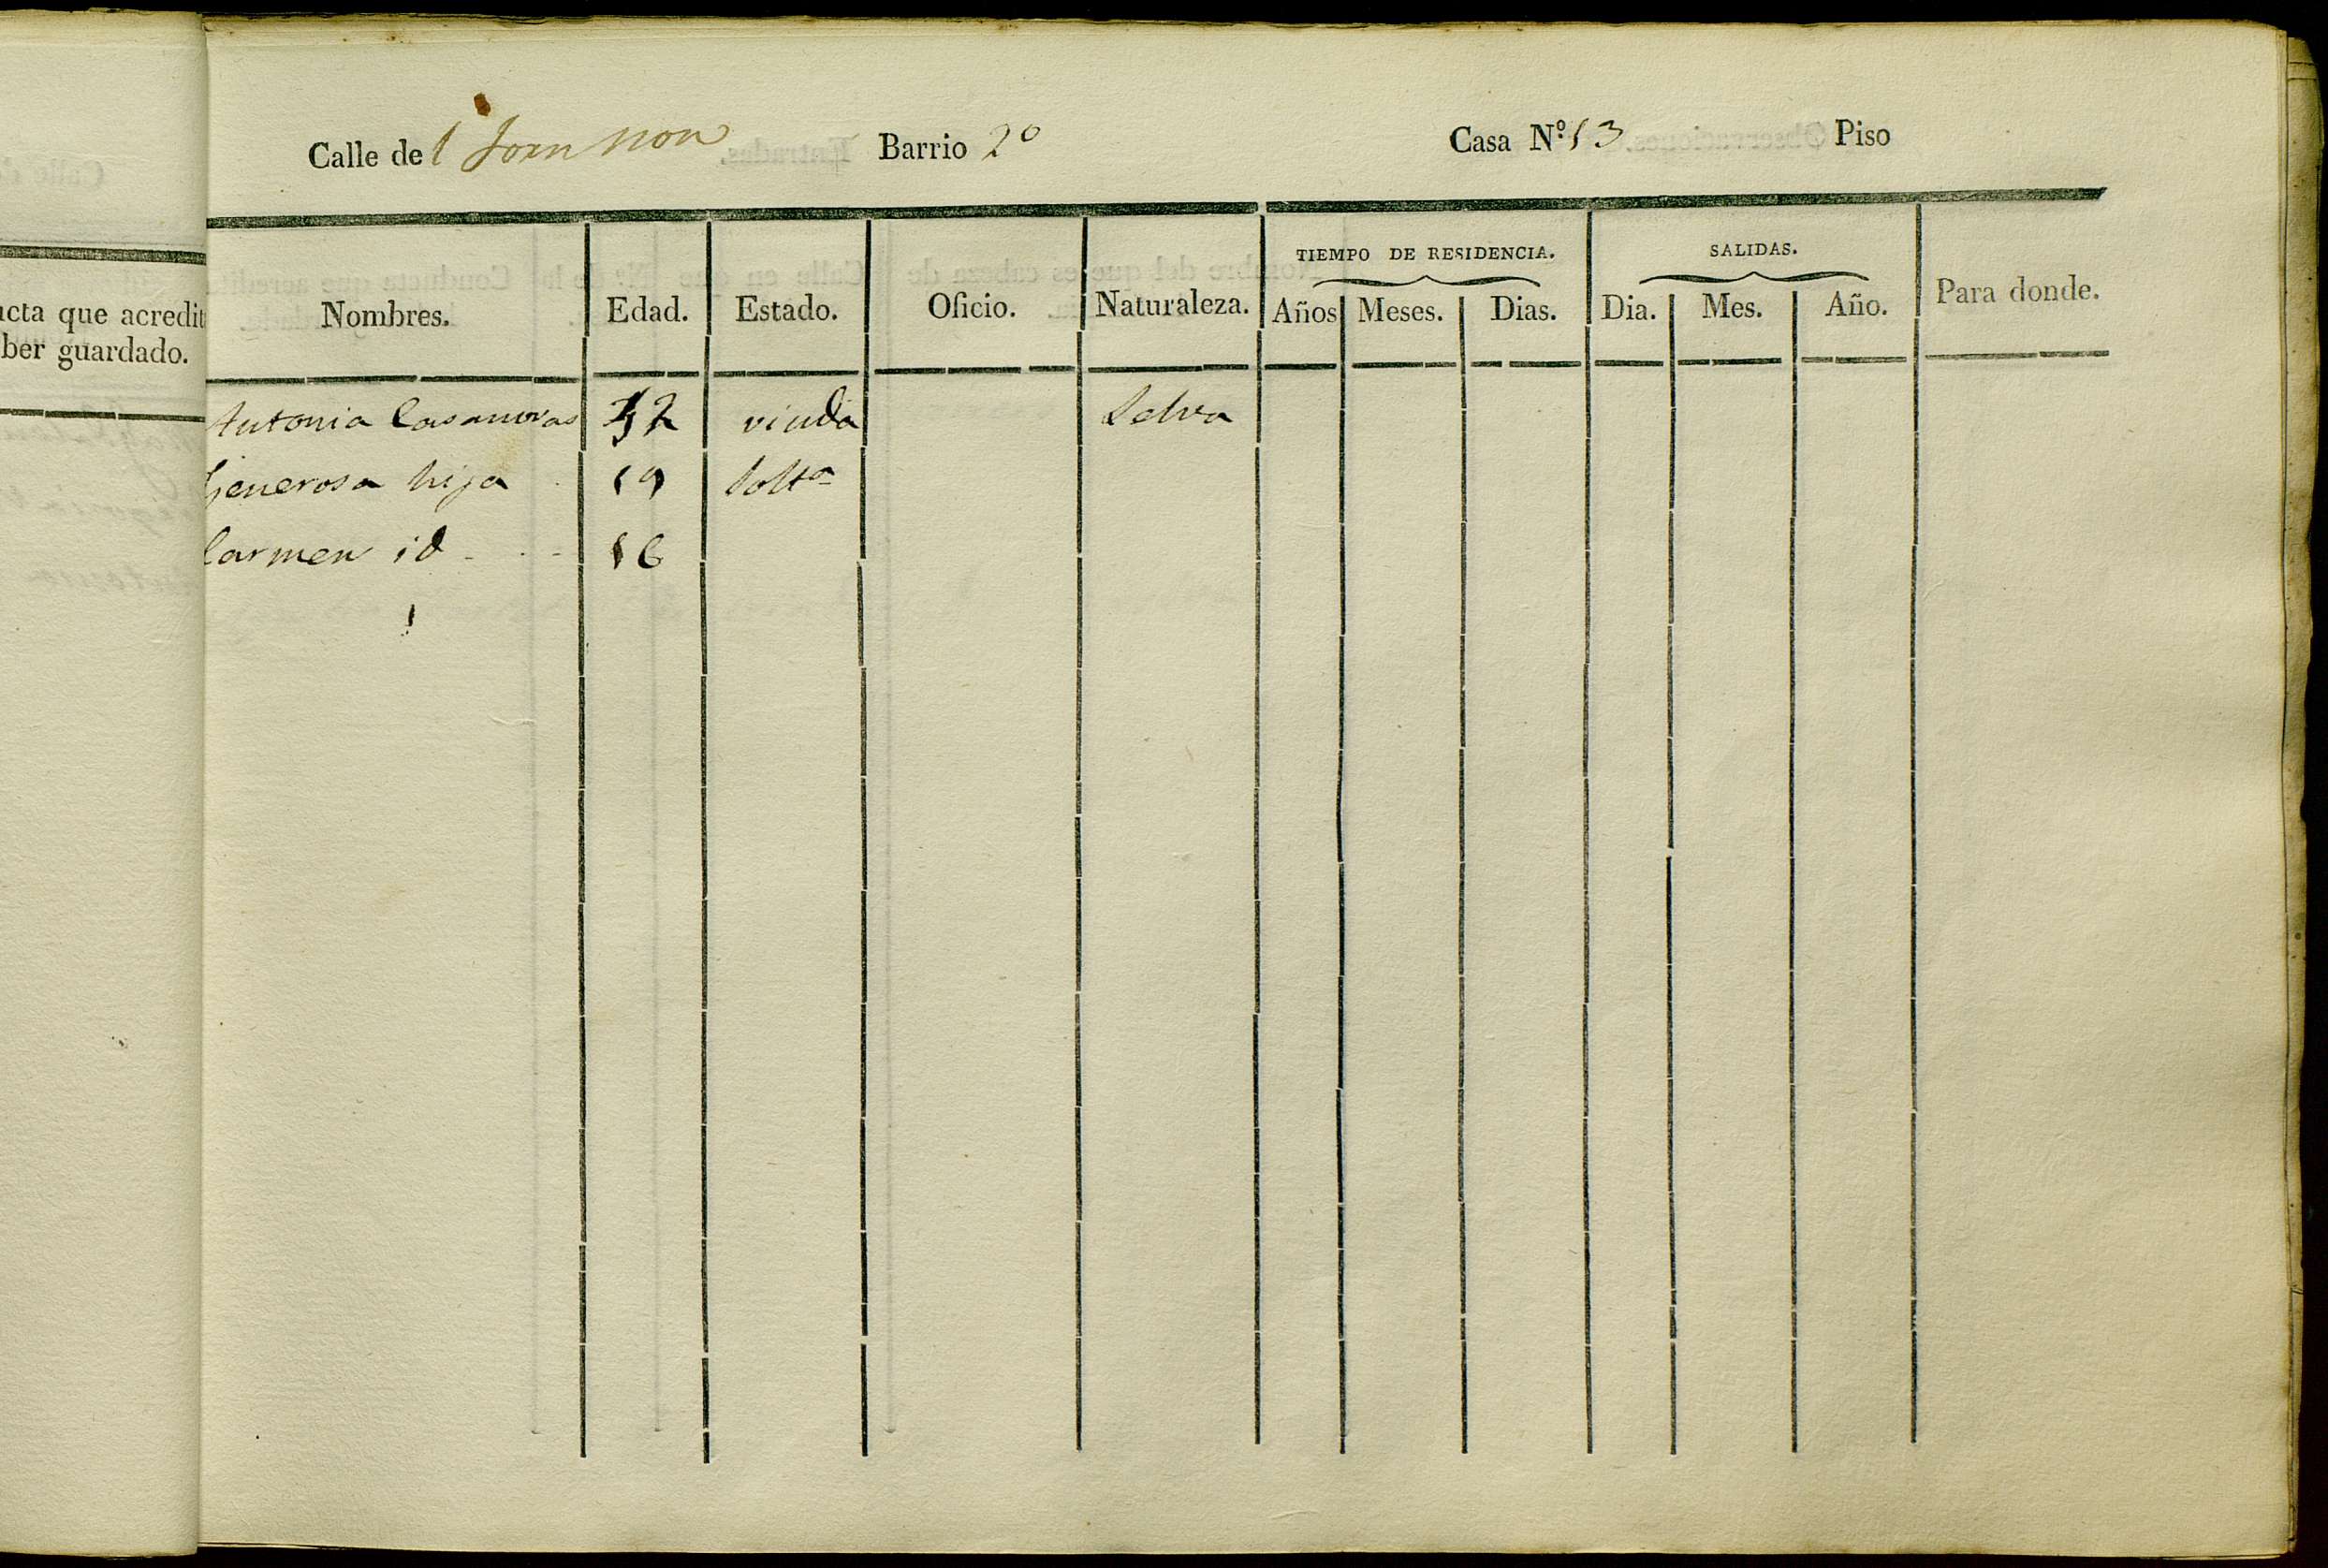 Calle del Forn nou Barrio 2º Casa Nº. 13 Piso
TIEMPO DE RESIDENCIA. SALIDAS.
Nombres. Edad. Estado. Oficio. Naturaleza. Años Meses. Dias. Dia. Mes. Año. Para donde.
Antonia Casanovas viuda Selva
Generosa hija 19 Soltª
Carmen id 16
ucta que acredit
ber guardado.